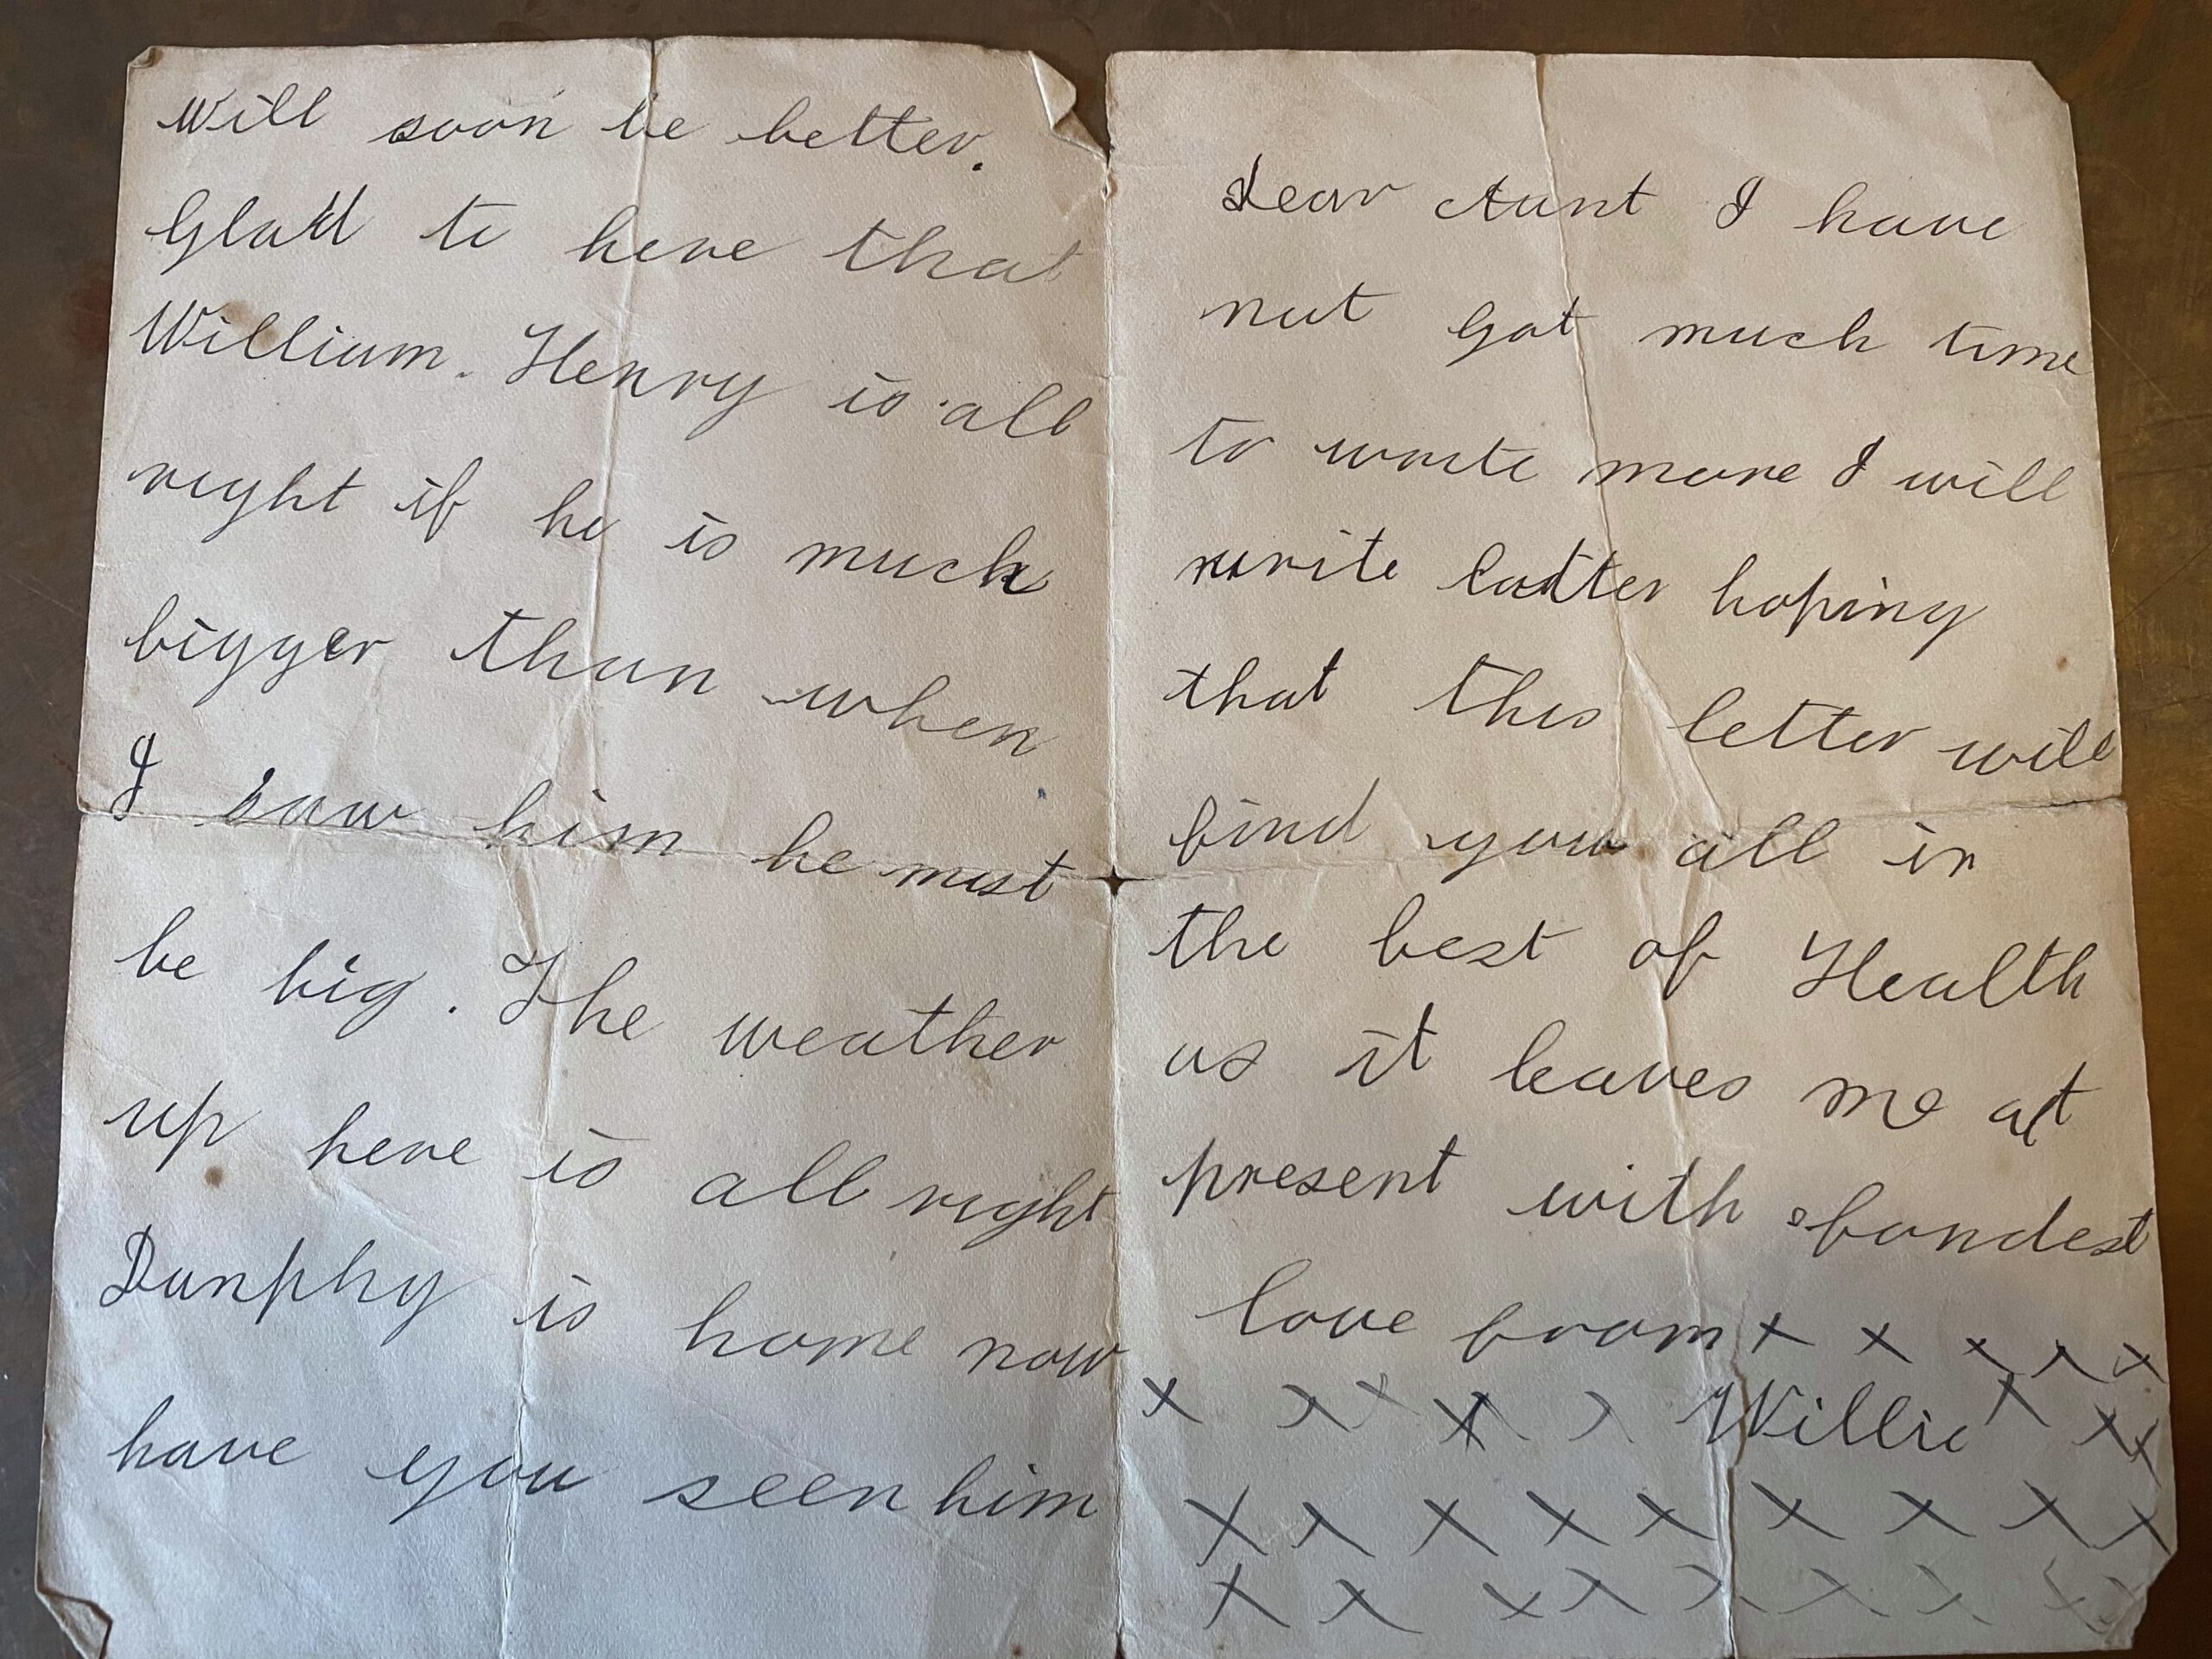 Will soon be better.
Glad to here that
William. Henry is all
right if he is much
bigger than when
I saw him he must
be big. The weather
up here is all right
Dunphy is home now
have you seen him
Dear Aunt I have
not got much time
to write more I will
write latter hoping
that this letter will
find you all in
the best of Health
as it leaves me at
present with fondest
love from x x x x x
x x x x x Willie x x x
x x x x x x x x x
x x x x x x x x x